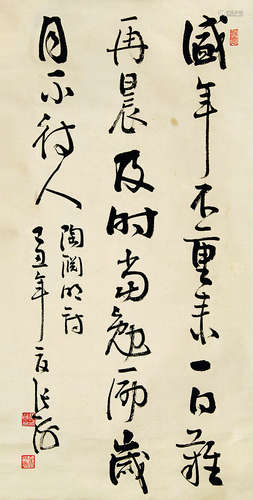 盛年不重来一日難
再晨及时当勉励歳
月不待人
陶渊明诗
己丑年夏